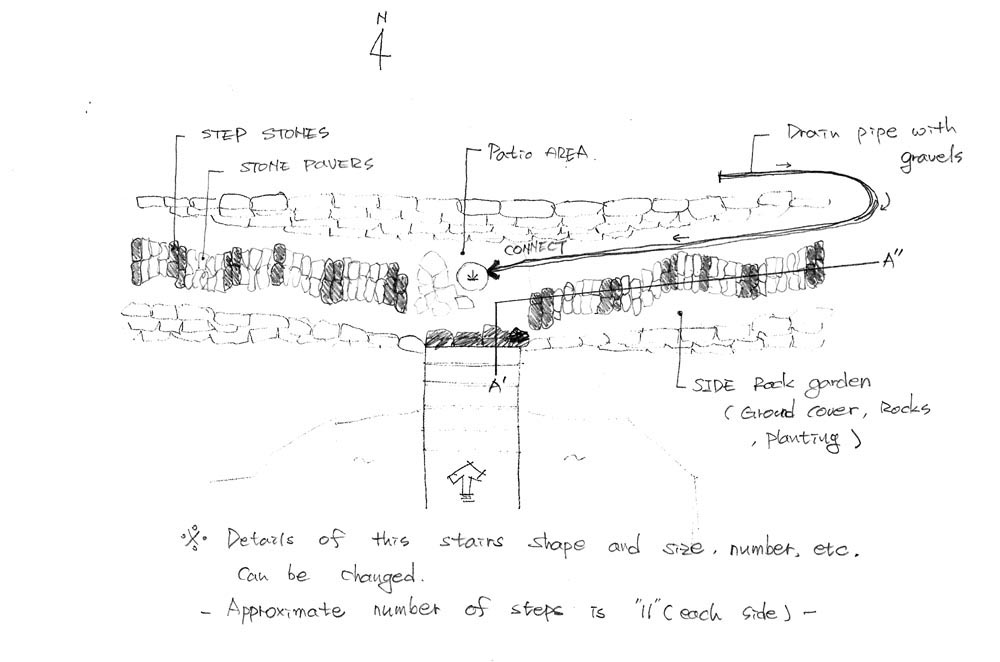 N
STEP STONES
STONE PAVERS
Patio AREA.
Drain pipe with
gravels
CONNECT
A"
A'
SIDE Rock garden
(Ground cover, Rocks
, Planting)
※ Details of this stairs shape and size, number, etc.
Can be changed.
- Approximate number of steps is "11" (each side) -